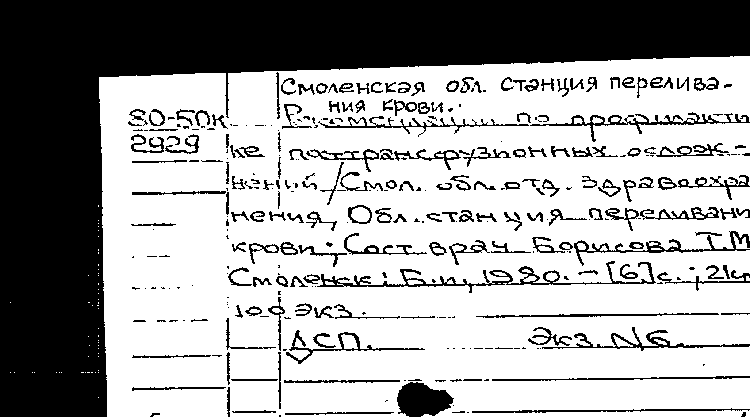 Смоленская обл. станция перелива-
ния крови.
80-50к Рекомендации по профилакти
2929 ке посттрансфузионных ослож-
нений/Смол. обл. отд. здравоохра
нения, Обл. станция переливани
крови; Сост. врач Борисова Т.М
Смоленск: Б.и., 1980. - [6] с.; 21 с
100 экз.
ДСП. Экз. №6.